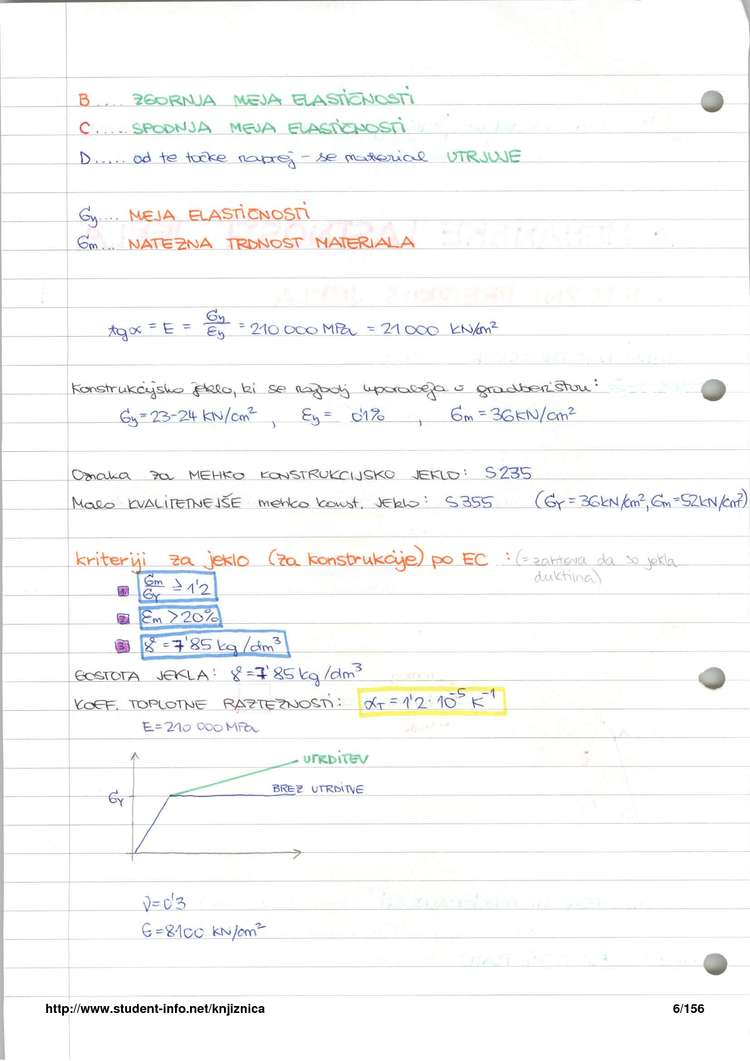 B..... ZGORNJA MEJA ELASTIČNOSTI
C..... SPODNJA MEJA ELASTIČNOSTI
D..... od te točke naprej - se material UTRJUJE
σy.... MEJA ELASTIČNOSTI
σm... NATEZNA TRDNOST MATERIALA
tgα = E = σy/εy = 210 000 MPa = 21 000 kN/cm²
Konstrukcijsko jeklo, ki se najbolj uporablja v gradbeništvu:
σy = 23-24 kN/cm² , εy = 0'1% , σm = 36 kN/cm²
Oznaka za MEHKO KONSTRUKCIJSKO JEKLO: S 235
Malo KVALITETNEJŠE mehko konst. JEKLO: S 355 (σy = 36 kN/cm², σm = 52 kN/cm²)
kriteriji za jeklo (za konstrukcije) po EC : (= zahteva da so jekla
duktilna)
1 σm/σy ≥ 1'2
2 εm > 20%
3 γ = 7'85 kg/dm³
GOSTOTA JEKLA: γ = 7'85 kg/dm³
KOEF. TOPLOTNE RAZTEZNOSTI: αT = 1'2 · 10⁻⁵ K⁻¹
E = 210 000 MPa
UTRDITEV
σy BREZ UTRDITVE
ν = 0'3
G = 8100 kN/cm²
http://www.student-info.net/knjiznica 6/156